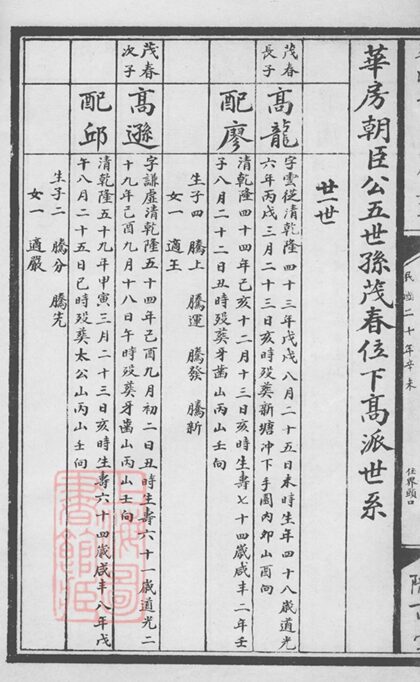 華房朝臣公五世孫茂春位下高派世系
廿一世
茂春長子
高龍
字雲從清乾隆四十三年戊戌八月二十五日未時生年四十八歲道光
六年丙戌三月二十三日亥時歿葬新塘冲下手園內卯山酉向
配廖
清乾隆四十四年己亥十二月十三日亥時生壽七十四歲咸丰二年壬
子八月二十二日丑時歿葬牙凿山丙山壬向
生子四 騰上 騰運 騰發 騰新
女一 適王
茂春次子
高遜
字謙虛清乾隆五十四年己酉九月初二日丑時生壽六十一歲道光二
十九年己酉九月十八日午時歿葬牙凿山丙山壬向
配邱
清乾隆五十九年甲寅三月二十三日亥時生壽六十四歲咸丰八年戊
午八月二十五日巳時歿葬太公山丙山壬向
生子二 騰分 騰先
女一 適嚴
民國二十年辛未